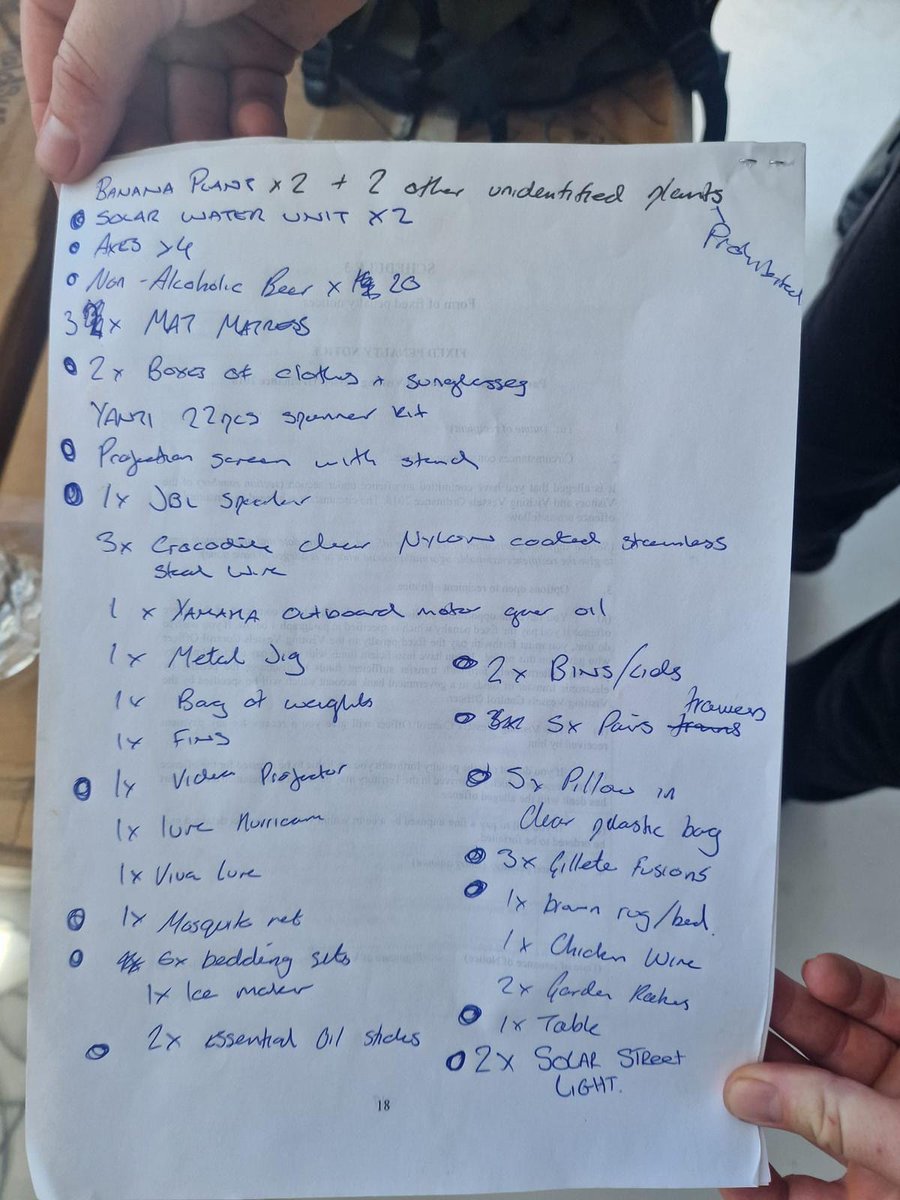 BANANA PLANS x 2 + 2 other unidentified plants
Prohibited
SOLAR WATER UNIT x2
AXES x4
Non-Alcoholic Beer x 20
3 x MAT MATRESS
2 x Boxes of cloths + sunglasses
YANZI 22pcs spanner kit
Projection screen with stand
1x JBL Speaker
3x Crocodile clear Nylon coated stainless
steal wire
1 x YAMAHA outboard motor gear oil
1x Metal Jig
1x Bag of weights
1x Fins
1x Video Projector
1x lure Hurricane
1x Viva Lure
1x Mosquito net
6x bedding sets
1x Ice maker
2x essential Oil sticks
2x Bins/Lids
5x Pairs trainers
5x Pillow in
clear plastic bag
3x Gillete Fusions
1x brown rug/bed.
1x Chicken Wire
2x Garden Rakes
1x Table
2x SOLAR STREET
LIGHT.
18